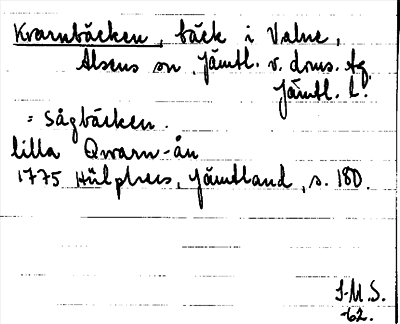 Kvarnbäcken, bäck i Valne,
Alsens sn, Jämtl. v. doms. tg.
Jämtl. L.
= Sågbäcken.
lilla Qwarn-ån
1775 Hülphers, Jämtland, s. 180.
I.M.S.
-62.